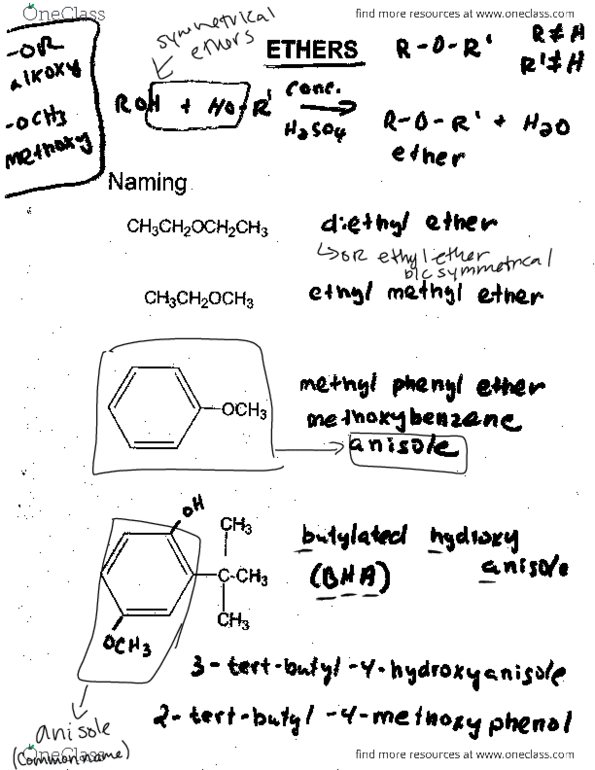 OneClass
find more resources at www.oneclass.com
symmetrical
ethers
ETHERS
R-O-R'
R≠H
R'≠H
-OR
alkoxy
-OCH3
methoxy
ROH + HO-R'
conc.
H2SO4
R-O-R' + H2O
ether
Naming
CH3CH2OCH2CH3
diethyl ether
↳OR ethyl ether
b/c symmetrical
CH3CH2OCH3
ethyl methyl ether
OCH3
methyl phenyl ether
methoxybenzene
anisole
OH
CH3
C-CH3
CH3
OCH3
butylated hydroxy
anisole
(BHA)
3-tert-butyl-4-hydroxyanisole
2-tert-butyl-4-methoxyphenol
anisole
(common name)
OneClass
find more resources at www.oneclass.com